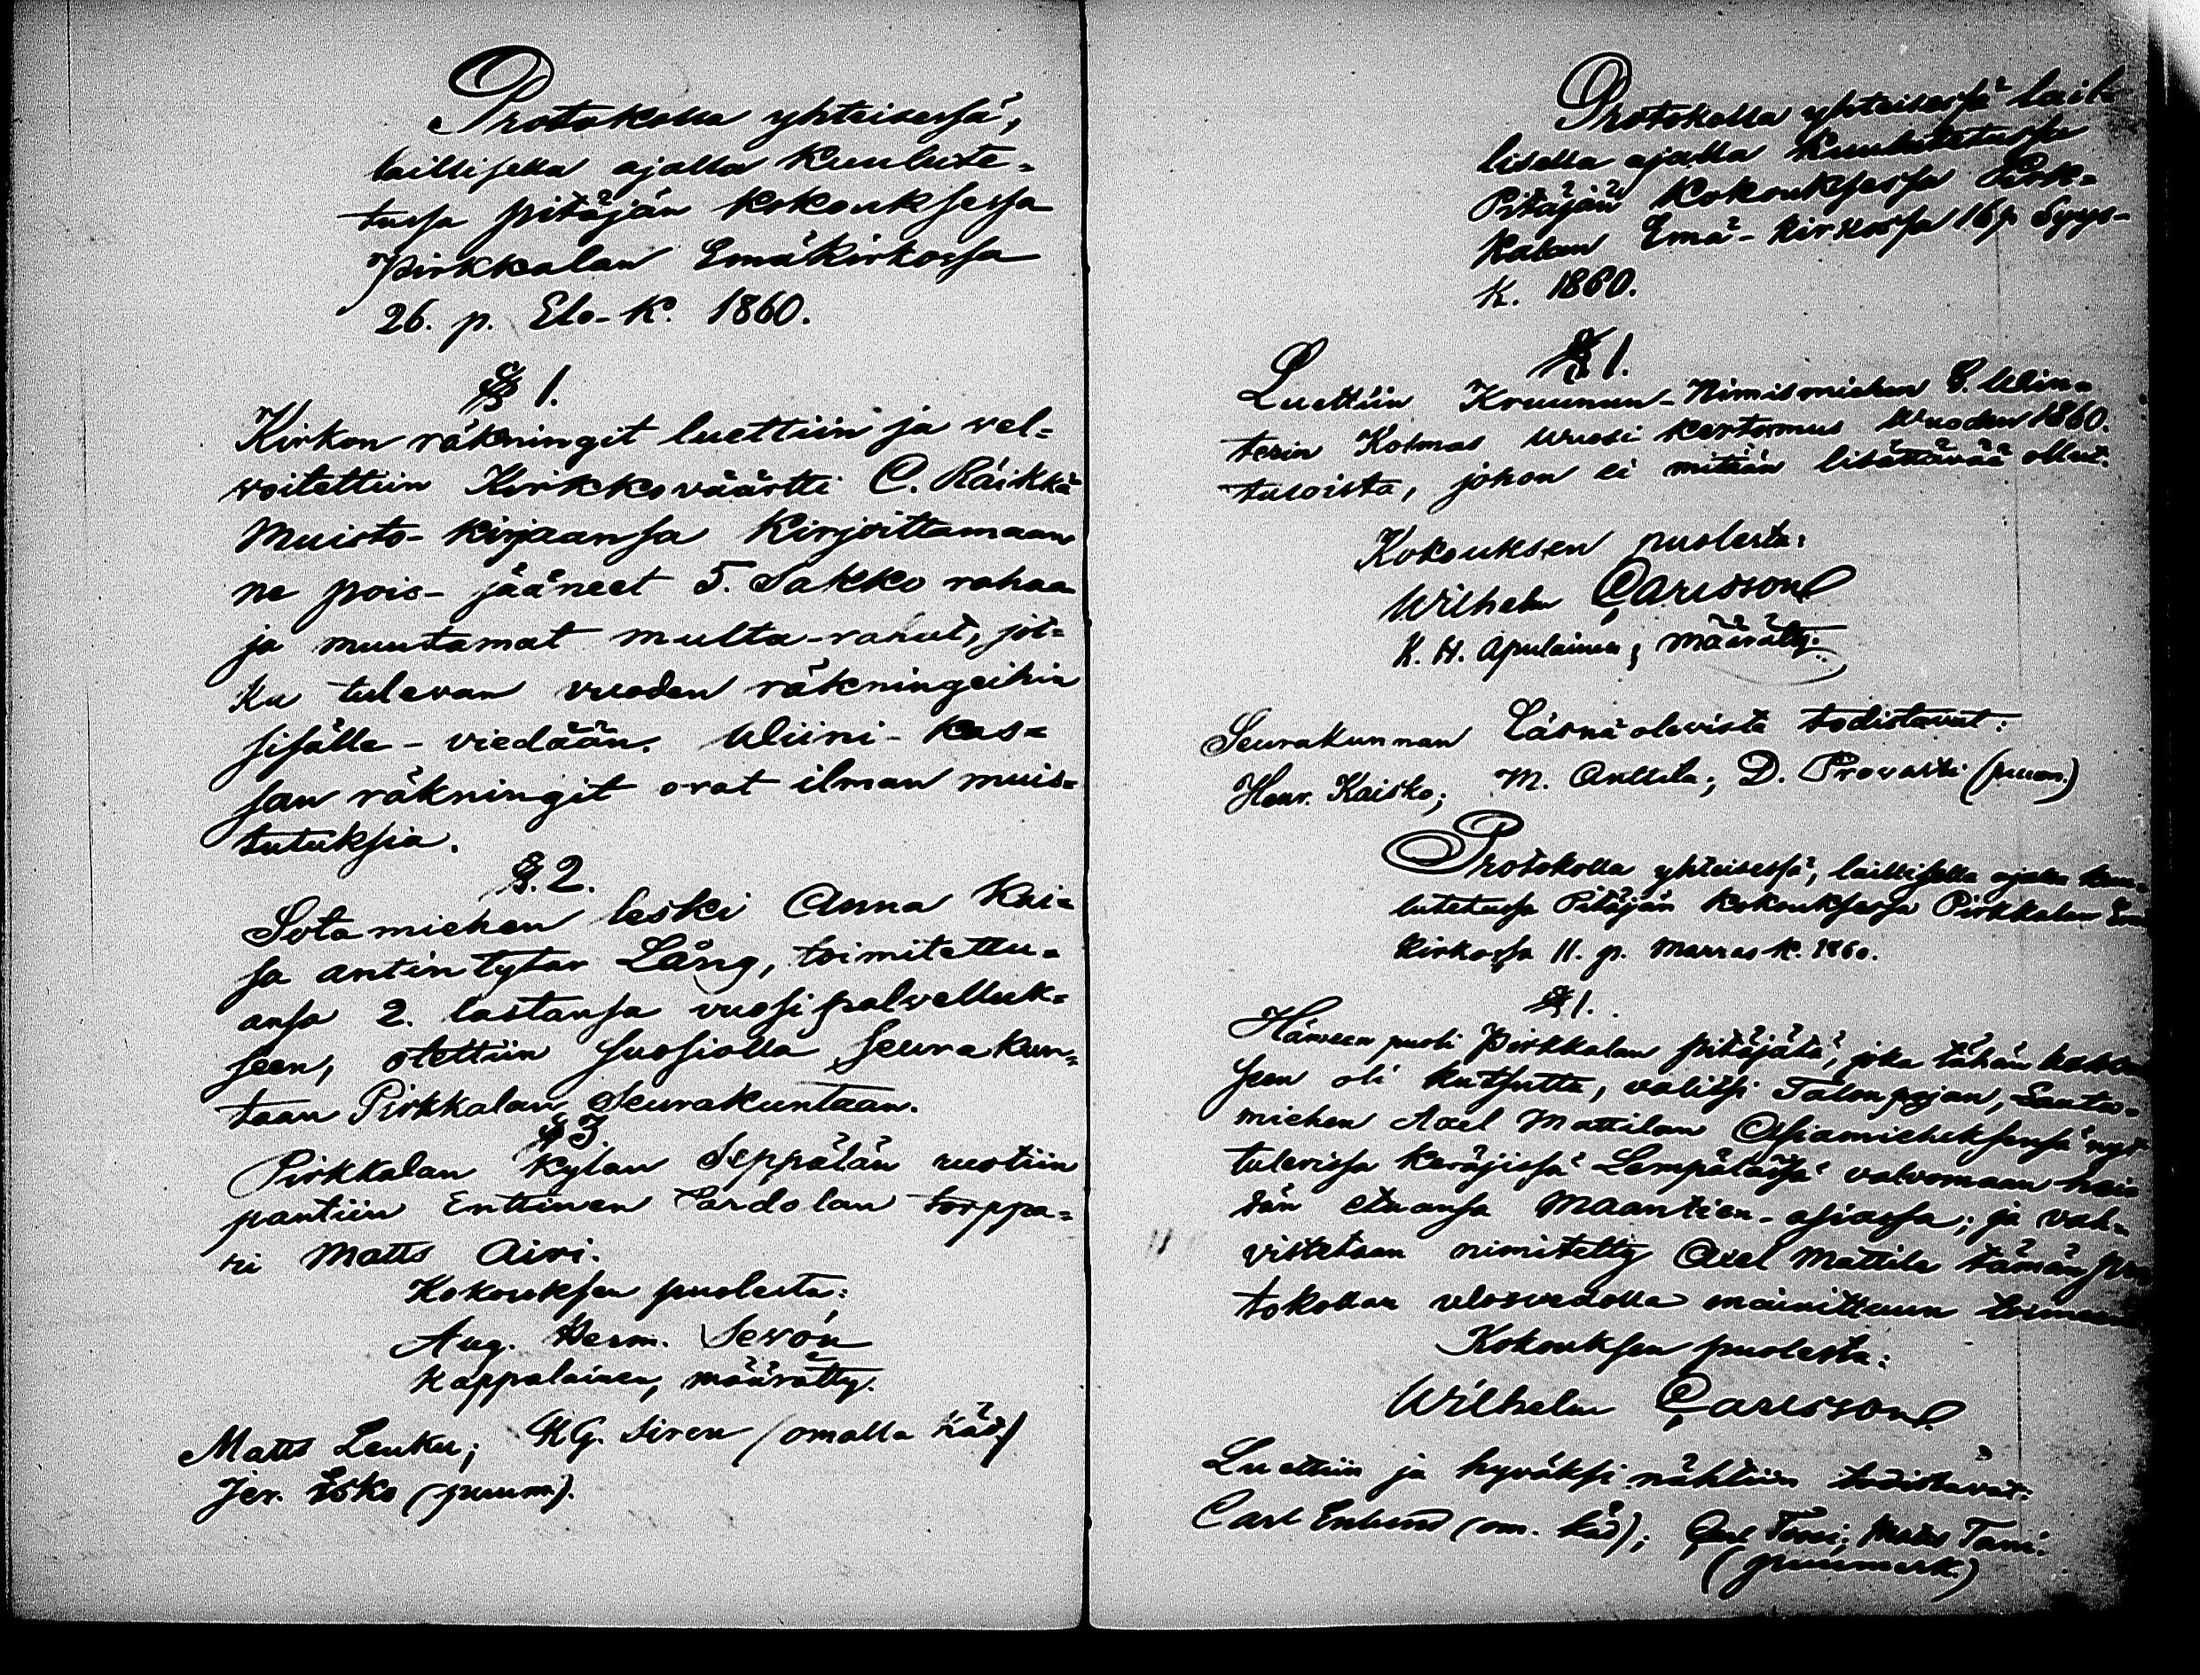 Protokolla yhteisessä,
laillisella ajalla kuulute=
tussa pitäjän kokouksessa
Pirkkalan Emäkirkossa
26. p. Elo-K. 1860.
§ 1.
Kirkon räkningit luettiin ja vel=
voitettiin Kirkkoväärtti C. Räikkä
Muisto-kirjaansa Kirjoittamaan
ne pois-jääneet 5. Sakko rahaa
ja muutamat multa-rahat, jot=
ka tulevan vuoden räkningeihin
sisälle-viedään. Wiini-kas=
san räkningit ovat ilman muis=
tutuksia.
§. 2.
Sotamiehen leski Anna Kai=
sa antintytar Lång, toimitettu=
ansa 2. lastansa vuosipalvelluk=
seen, otettiin suosiolla seurakun=
taan Pirkkalan Seurakuntaan.
§ 3
Pirkkalan Kylan Seppälän ruotiin
pantiin Enttinen Sardolan torppa=
ri Matts Airi.
Kokouksen puolesta:
Aug. Herm. Sevón
Kappalainen, määrätty.
Matts Leuku; K G. Siren (omalla käd)
Jer. Esko (puum).
Protokolla yhteisessä lail
lisella ajalla Kuulutetussa
Pitäjän Kokouksessa Pirk=
kalan Emä-kirkossa 16 p Syys-
k. 1860.
§ 1.
Luettiin Kruunun-Nimismiehen C. Win=
terin Kolmas Wuosi kertomus Wuoden 1860.
tuloista, johon ei mitään lisättävää ollut.
Kokouksen puolesta:
Wilhelm Carlsson
K. H. Apulainen, määrätty.
Seurakunnan Läsnäolevista todistavat:
Henr. Kaisko; M. Anttila; D. Provasti (puum.)
Protokolla yhteisessä, laillisella ajalla kuu=
lutetussa Pitäjän kokouksessa Pirkkalan Emä
kirkossa 11. p. Marras-k. 1860.
§ 1.
Hämeen puoli Pirkkalan pitäjätä, joka tähän kokouk
seen oli kutsuttu, valitsi Talonpojan, Lauta=
miehen Axel Mattilan Asiamieheksensä nyt
tulevissa keräjissä Lempäläässä valvomaan hei=
dän etuansa Maantien-asiassa; ja vah=
vistetaan nimitetty Axel Mattila tämän pro
tokollan ulosvedolla mainittuun toimeen
Kokouksen puolesta:
Wilhelm Carlsson.
Luettiin ja hyväksi nähtiin todistavat:
Carl Enlund (om. käd); Carl Tani; Matts Tani.
(puumerk.)